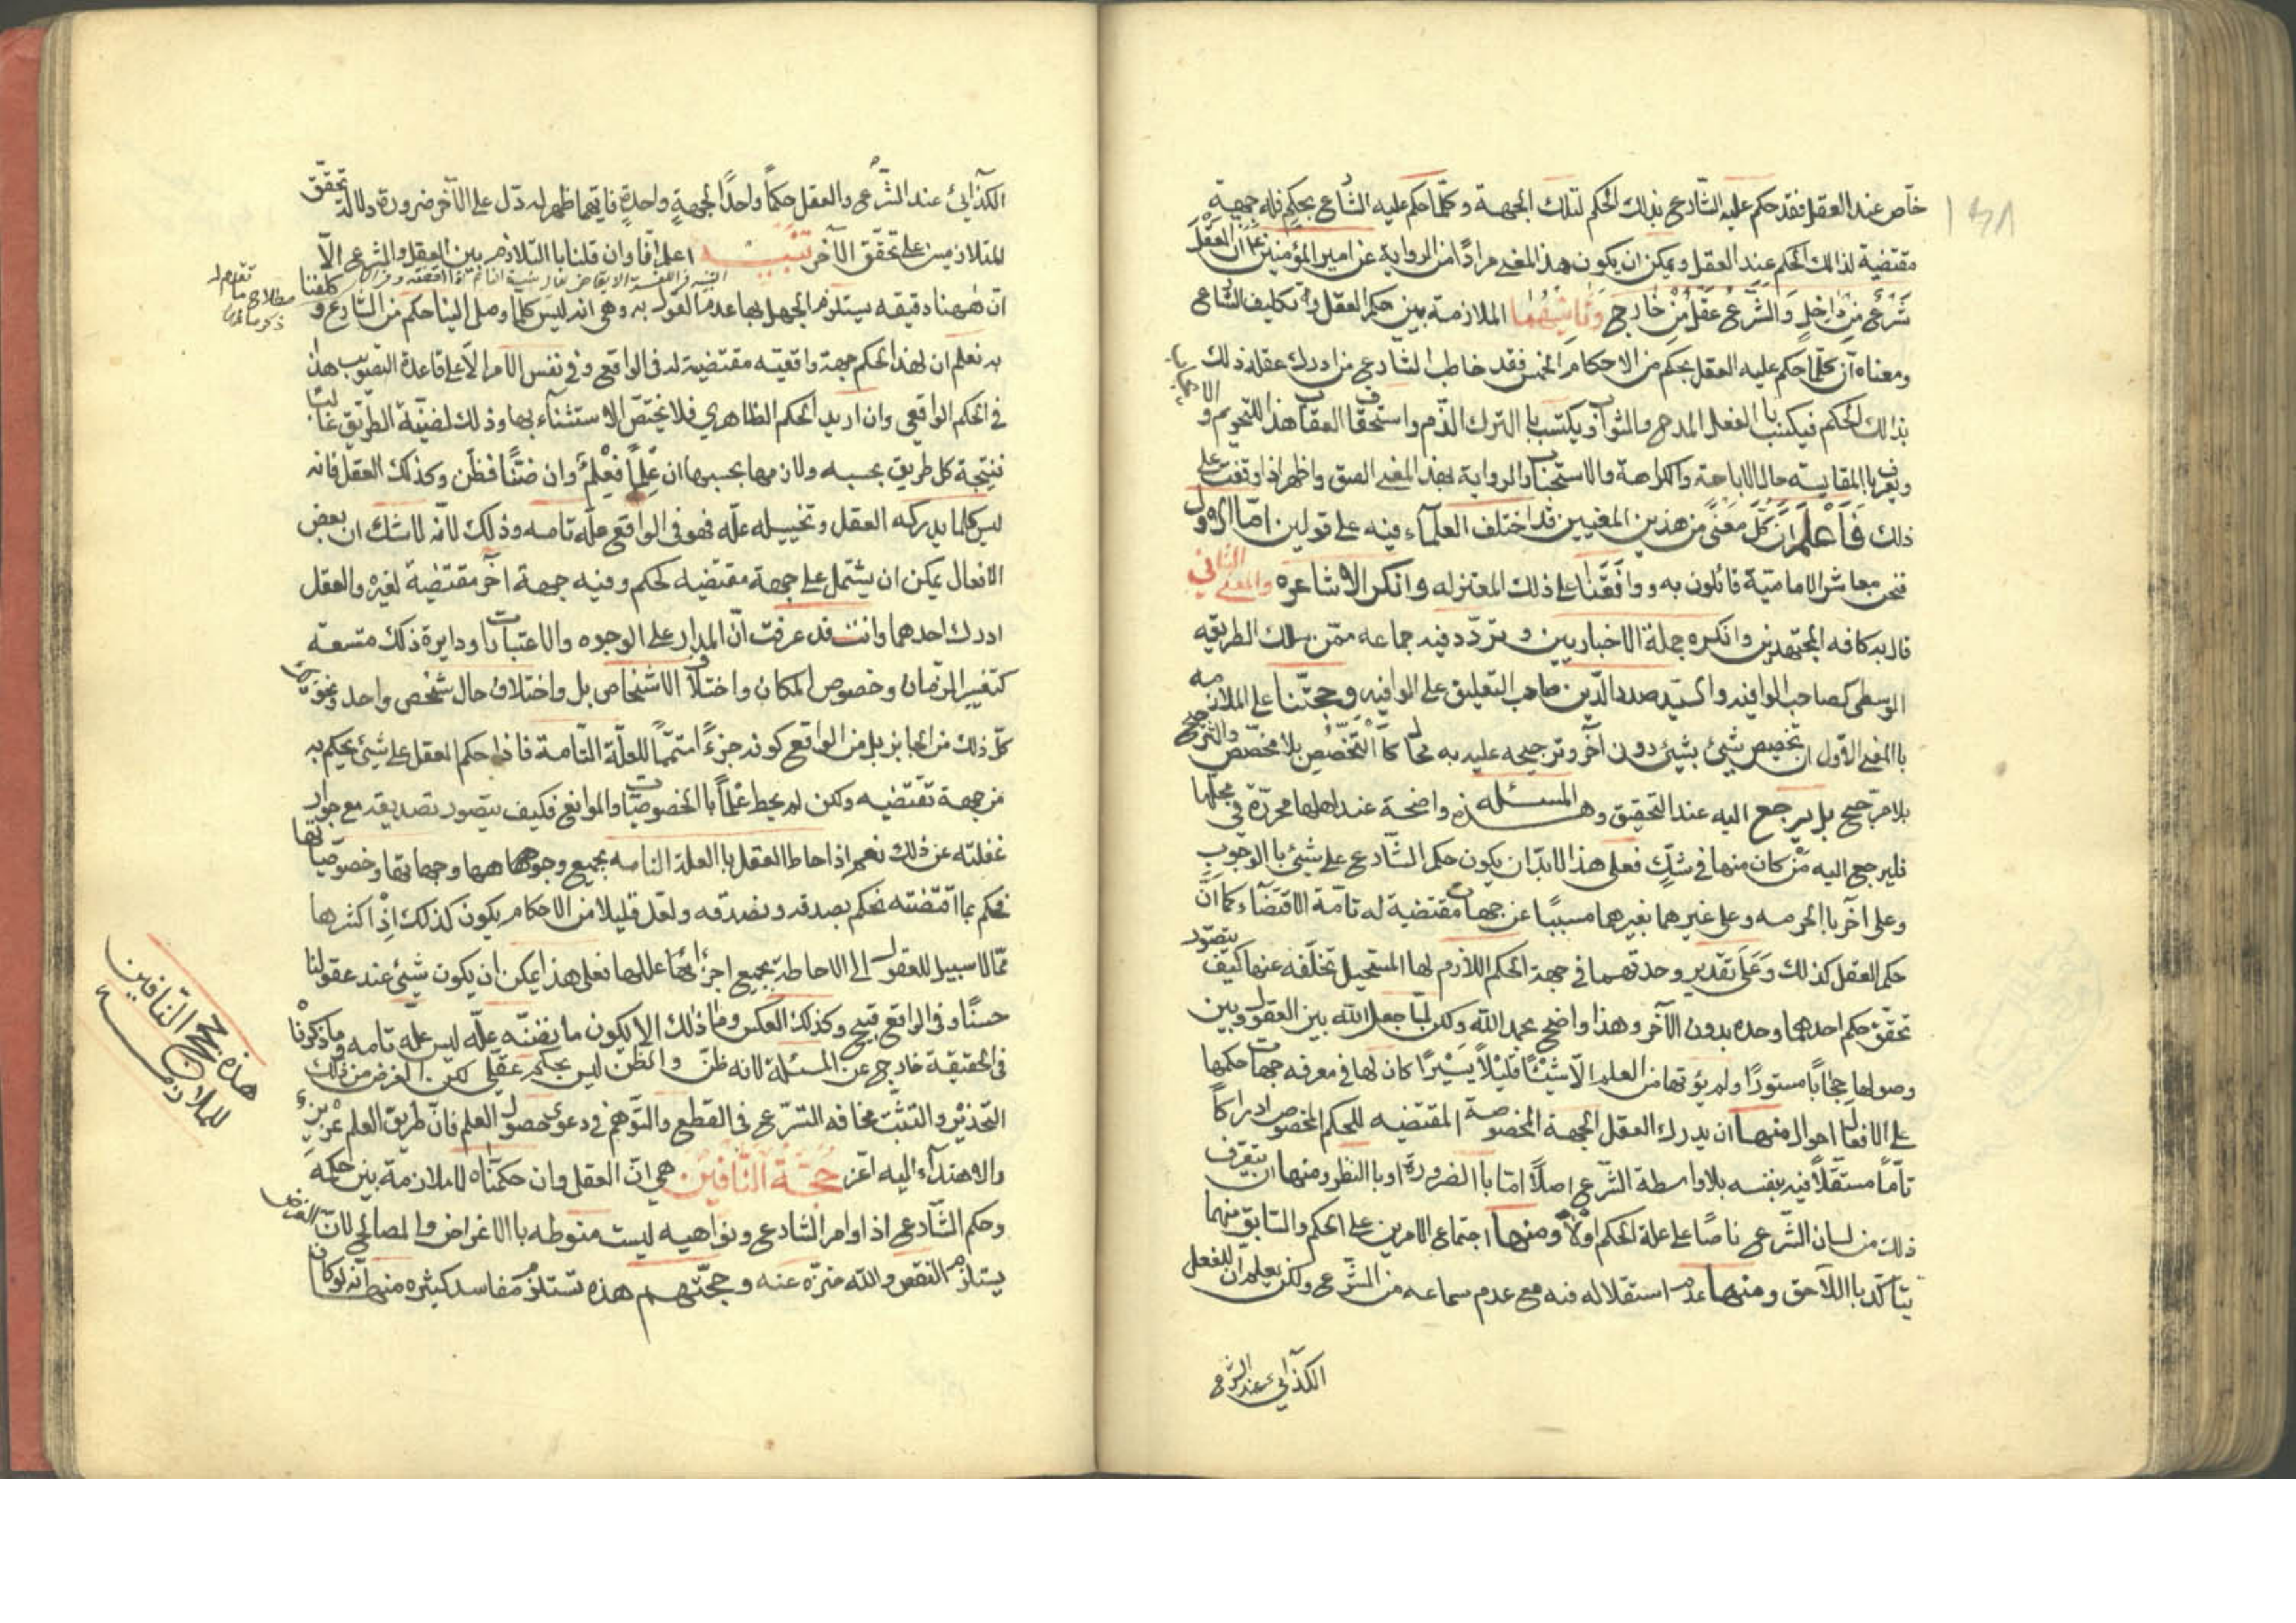 خاّص عند العقل فقد حكم عليه الشّارع بذلك الحكم لتلك الجهة وكلّما حكم عليه الشّاع بحكم فله جهة
مقتضية لذالك الحكم عند العقل ويمكن ان يكون هذا المغى مرادًا من الرواية عن امير المؤمنين انّ العقل
شَرعٌ مِن داخِلٍ وَالشَّرعُ عَقلٌ مِن خارِج وَثانيهُما الملازمة بين حكم العقل وتكاليف الشّاعى
ومعناه انّ كلّما حكم عليه العقل بحكم من الاحكام الخمس فقد خاطب الشارع من ادرك عقله ذلك
بذالك الحكم فيكسب با الفعل المدح والثواب ويكتسب با الترك الذّم واستحقاق العقاب هذا للتحريم و
الايجاب
ويعرف با المقايسة حال الاباحة والكراهة والاستحباب والرواية بهذ المغى الصق واظهر اذا وقفت على
ذلك فَاعْلَم اَنَّ كُلَّ مَعنًى من هذين المغيين قد اختلف العلمآء فيه على قولين امّا الاوّل
فنحن معاشر الاماميّة قائلون به ووافَقَنا على ذلك المعتزله وانكر الاشاعره والمغى الثّاني
قال به كافه المجتهدين وانكره جملة الاخباريين وتردّد فيه جماعه ممّن سلك الطريقه
الوسطى كصاحب الوافيه والسّيد صدر الدّين صاحب التعليق على الوافيه وحجّتنا على الملازمه
با المغى الاوّل انّ تخصيص شيئ بشيئ دون آخر وترجيحه عليه به محال كالتّخصيص بلا مخصّص والترجيح
بلا مرجّح بل يرجع اليه عند التحقيق وهذه المسئله واضحة عند اهلها محرّرة في محلّها
فليرجع اليه مَن كان منها في شكٍّ فعلى هذا لابدّ ان يكون حكم الشّارع على شيئ با الوجوب
وعلى آخر با الحرمه وعلى غيرهما بغيرهما مسببًا عن جهات مقتضية له تامّة الاقتضآء كما انّ
حكم العقل كذلك وَعَلى تقدير وحدتهما في جهة الحكم اللّازم لها المستحيل تخلّفه عنها كيف يتصوّر
تحقّق حكم احدهما وحده بدون الآخر وهذا واضح بحمد اللّه ولكن لمّا جعل اللّه بين العقول وبين
وصولها حجابًا مستورًا ولم يؤتها من العلم الّا شيئًا قليلًا يسيرًا كان لها في معرفه جهات حكمها
على الافعال احوال منها ان يدرك العقل الجهة المخصوصة المقتضيه للحكم المخصوص ادراكًا
تامّا مستقلًّا فيه بنفسه بلا واسطة الشّرع اصلًا امّا با الضرورة او با النظر ومنها ان يتعرّف
ذلك من لسان الشّرع ناصًا على علة الحكم اوّلا ومنها اجتماع الامرين على الحكم والسّابق منهما
يتأكّد با اللّاحق ومنها عدم استقلاله فيه مع عدم سماعه من الشّرع ولكن يعلم انّ للفعل
الكذائي عند الشّرع
الكذآئىّ عند الشّرع والعقل حكمًا واحدًا لجهةٍ واحدةٍ فايّهما ظهر له دّل على الآخر ضرورة دلالة تحقّق
المتلازمين على تحقّق الآخر تنبيه اعلم انّا وان قلنا با التلازم بين العقل والشرع الّا
انّ هٰهنا دقيقه يستلزم الجهل بها عدم القول به وهى انه ليس كلّما وصل الينا حكم من الشّارع و كلفنا
به نعلم ان لهذ الحكم جهة واقعيّه مقتضية له فى الواقع وفي نفس الامر الّا على قاعدة التصويب هذا
في الحكم الواقعى وان اريد الحكم الظاهري فلا يختصّ الاستثنآء بها وذلك لضنّيّة الطّريق غالبًا
نتيجة كل طريق بحسبه ولازمها بحسبها ان عِلمًا فعِلمٌ وان ضنًّا فظّن وكذلك العقل فانه
ليس كلما يدركه العقل وتخييله علّه فهو في الواقع علّه تامه وذلك لانّه لا شك ان بعض
الافعال يمكن ان يشتمل على جهة مقتضيه لحكم وفيه جهة اخر مقتضية لغيره والعقل
ادرك احدهما وانت قد عرفت انّ المدار على الوجوه والاعتبارات ودايرة ذلك متسعّه
كتغيير الزّمان وخصوص المكان واختلاف الاشخاص بل واختلاف حال شخص واحد ونحو
كلّ ذلك من الجايز بل من الواقع كونه جزءًا متممًا للعلّة التّامة فاذا حكم العقل على شيئ بحكم به
من جهة تقتضيه ولكن لم يحط علمًا با الخصوصيّات والموانع فكيف يتصور تصديقه مع جواز
غفلته عن ذلك نعم اذا حاط العقل با العلة التامه بجميع وجوهها وجهاتها وخصوصياتها
نحكم بما اقتضته نحكم بصدقه ونصدقه ولعل قليلا من الاحكام يكون كذلك اِذْ اكثرها
ممّا لا سبيل للعقول الى الاحاطة بجميع اجزائها عللها فعلى هذا يمكن ان يكون شيئ عند عقولنا
حسنًا وفى الواقع قبيح وكذلك العكس وما ذلك الا لكون ما نضنّه علّه ليس علّه تامه وما ذكرنا
في الحقيقة خارج عن المسئلة لانه ظنّ والظّن ليس بحكم عقليّ لكن الغرض من ذلك
التّحذير والتثبّت مخافه التسرّع في القطع والتّوهم في دعوى حصول العلم فانّ طريق العلم عزيز
والاهتدآء اليه اعّز حُجّة النّافين هى انّ العقل وان حكمناه لا ملازمة بين حكمه
وحكم الشّارع اذ اوامر الشارع ونواهيه ليست منوطه با الاغراض والمصالح لانّ الغرض
يستلزم النقص واللّه منزّه عنه وحجّتهم هذه تستلزم مفاسد كثيره منها انّه لو كان
هذه حجج النّافين
للملازمه